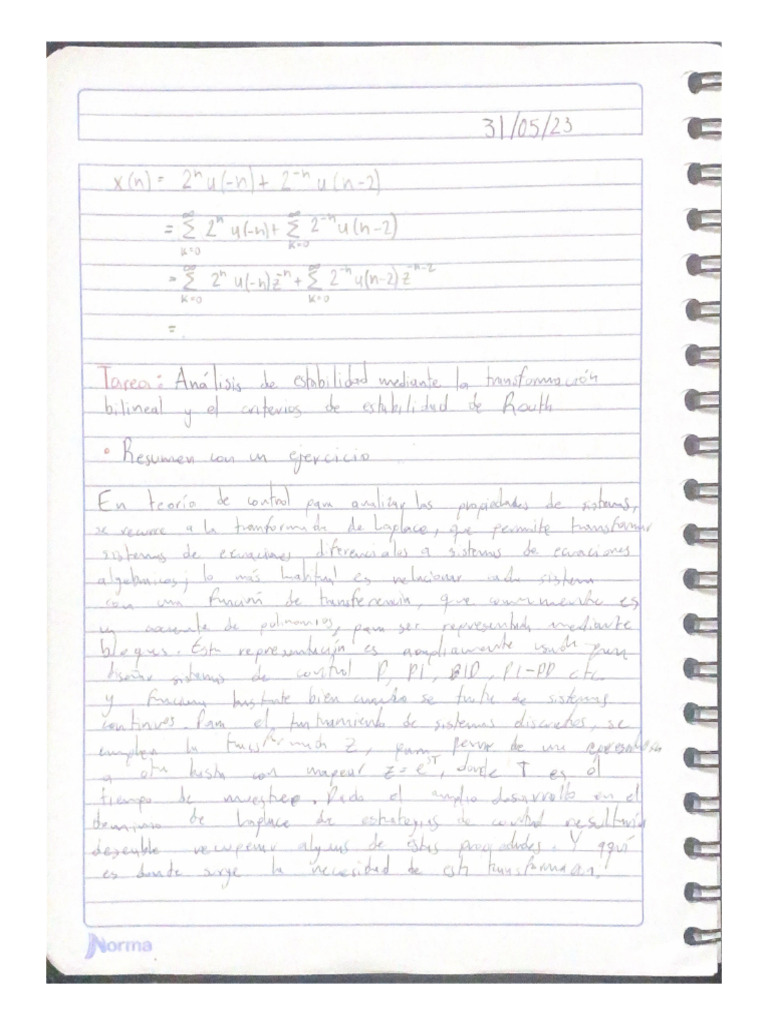 31/05/23
x(n) = 2ⁿ u(-n) + 2⁻ⁿ u(n-2)
= ∞ Σ k=0 2ⁿ u(-n) + ∞ Σ k=0 2⁻ⁿ u(n-2)
= ∞ Σ k=0 2ⁿ u(-n) z⁻ⁿ + ∞ Σ k=0 2⁻ⁿ u(n-2) z⁻ⁿ⁻²
=
Tarea: Análisis de estabilidad mediante la transformación
bilineal y el criterios de estabilidad de Routh
• Resumen con un ejercicio
En teoría de control para analizar las propiedades de sistemas,
se recurre a la tranformada de Laplace, que permite transformar
sistemas de ecuaciones diferenciales a sistemas de ecuaciones
algebraicos; lo más habitual es relacionar cada sistema
con una función de transferencia, que comunmente es
un cociente de polinomios, para ser representada mediante
bloques. Esta representación es ampliamente usada para
diseñar sistemas de control P, PI, PID, PI-PD etc.
y funciona bastante bien cuando se trate de sistemas
continuos. Para el tratamiento de sistemas discretos, se
emplea la transformada Z, para de una
a otra basta con mapear z = e^sT, donde T es el
tiempo de muestreo. Dado el amplio desarrollo en el
dominio de Laplace de estrategias de control resultaría
deseable recuperar algunas de éstas propiedades. Y aquí
es donde surge la necesidad de esta transformación.
Norma